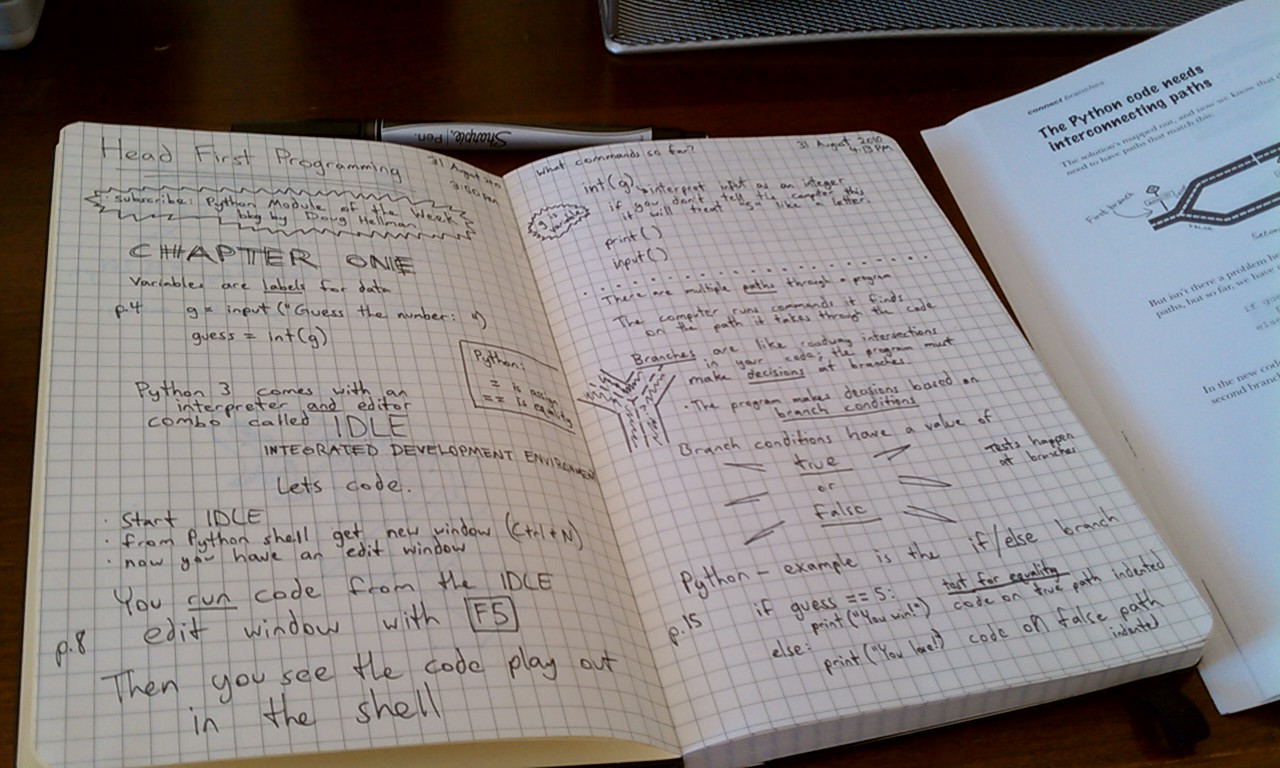 Head First Programming
31 August 2010
3:50 pm
subscribe: Python Module of the Week
blog by Doug Hellman
CHAPTER ONE
Variables are labels for data
p.4 g = input ("Guess the number: ")
guess = int(g)
Python:
= is assign
== is equality
Python 3 comes with an
interpreter and editor
combo called IDLE
INTEGRATED DEVELOPMENT ENVIRONMENT
Lets code.
· Start IDLE
· from Python shell get new window (Ctrl+N)
· now you have an edit window
You run code from the IDLE
edit window with F5
p.8
Then you see the code play out
in the shell
Sharpie Pen.
What commands so far?
31 August 2010
4:13 pm
int(g) → interpret input as an integer
if you don't tell the computer this
it will treat "g" like a letter.
g is variable
print()
input()
There are multiple paths through a program
The computer runs commands it finds
on the path it takes through the code
Branches are like roadway intersections
in your code; the program must
make decisions at branches.
· The program makes decisions based on
branch conditions
Branch conditions have a value of
true
or
false
Tests happen
at branches
Python - example is the if/else branch
p.15 if guess == 5: test for equality
print("You win!") code on true path indented
else:
print("You lose!") code on false path
indented
connect branches
The Python code needs
interconnecting paths
The solution's mapped out, and now we know that
need to have paths that match this:
First branch
FALSE
But isn't there a problem
paths, but so far, we have
In the new
second